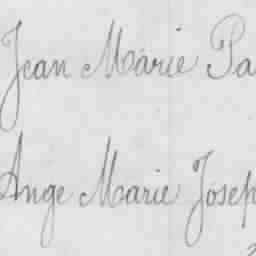 Jean Marie Pa
Ange Marie Josep